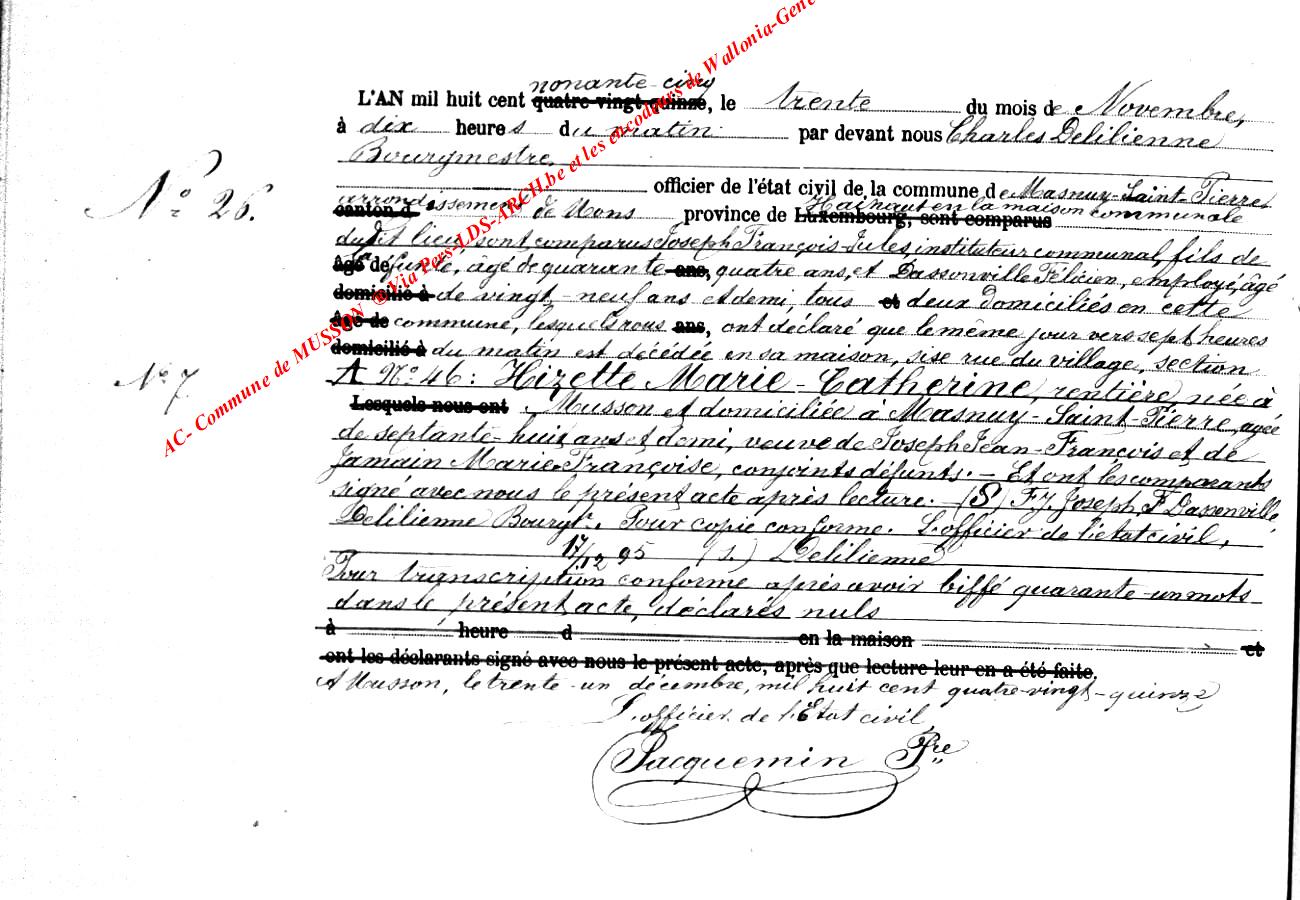 nonante-cinq
L'AN mil huit cent quatre-vingt-quinze, le trente du mois de Novembre,
à dix heures du matin par devant nous Charles Delilienne
Bourgmestre,
officier de l'état civil de la commune de Masnuy-Saint-Pierre,
N° 26.
arrondissement de Mons Hainaut en la maison communale
canton d province de Luxembourg, sont comparus
dudit lieu sont comparus Joseph François-Jules, instituteur communal, fils de
âgé de funte, âgé de quarante ans, quatre ans, et Dassonville Félicien, employé, âgé
domicilié à de vingt-neuf ans et demi, tous et deux domiciliés en cette
âgé de commune, lesquels nous ans, ont déclaré que le même jour vers sept heures
domicilié à du matin est décédée en sa maison, sise rue du village, section
N° 7
A N° 46 : Hizette Marie-Catherine, rentière, née à
Lesquels nous ont Musson et domiciliée à Masnuy-Saint-Pierre, agée
de septante-huit ans et demi, veuve de Joseph Jean-François et de
Jamain Marie-Françoise, conjoints défunts. — Et ont les comparants
signé avec nous le présent acte après lecture. (S) F. J. Joseph F Dassonville,
Delilienne Bourgt. Pour copie conforme. L'officier de l'état civil,
17/12 95 (s.) Delilienne
Pour transcription conforme après avoir biffé quarante-un mots
dans le présent acte, déclarés nuls
à heure d en la maison et
ont les déclarants signé avec nous le présent acte, après que lecture leur en a été faite.
A Musson, le trente-un décembre, mil huit cent quatre-vingt-quinze
L'officier de l'Etat civil,
Jacquemin Pre
AC- Commune de MUSSON @Via Pers-LDS-ARCH.be et les encodeurs de Wallonia-Gene